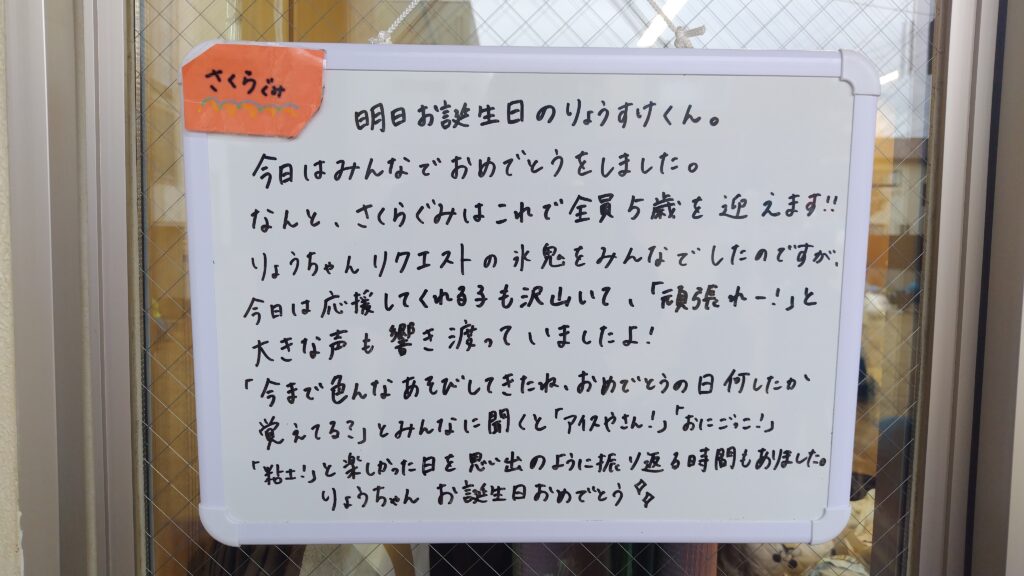 さくらぐみ
明日お誕生日のりょうすけくん。
今日はみんなでおめでとうをしました。
なんと、さくらぐみはこれで全員5歳を迎えます!!
りょうちゃんリクエストの氷鬼をみんなでしたのですが、
今日は応援してくれる子も沢山いて、「頑張れー!」と
大きな声も響き渡っていましたよ!
「今まで色んなあそびしてきたね、おめでとうの日何したか
覚えてる?」とみんなに聞くと「アイスやさん!」「おにごっこ!」
「粘土!」と楽しかった日を思い出のように振り返る時間もありました。
りょうちゃん お誕生日おめでとう